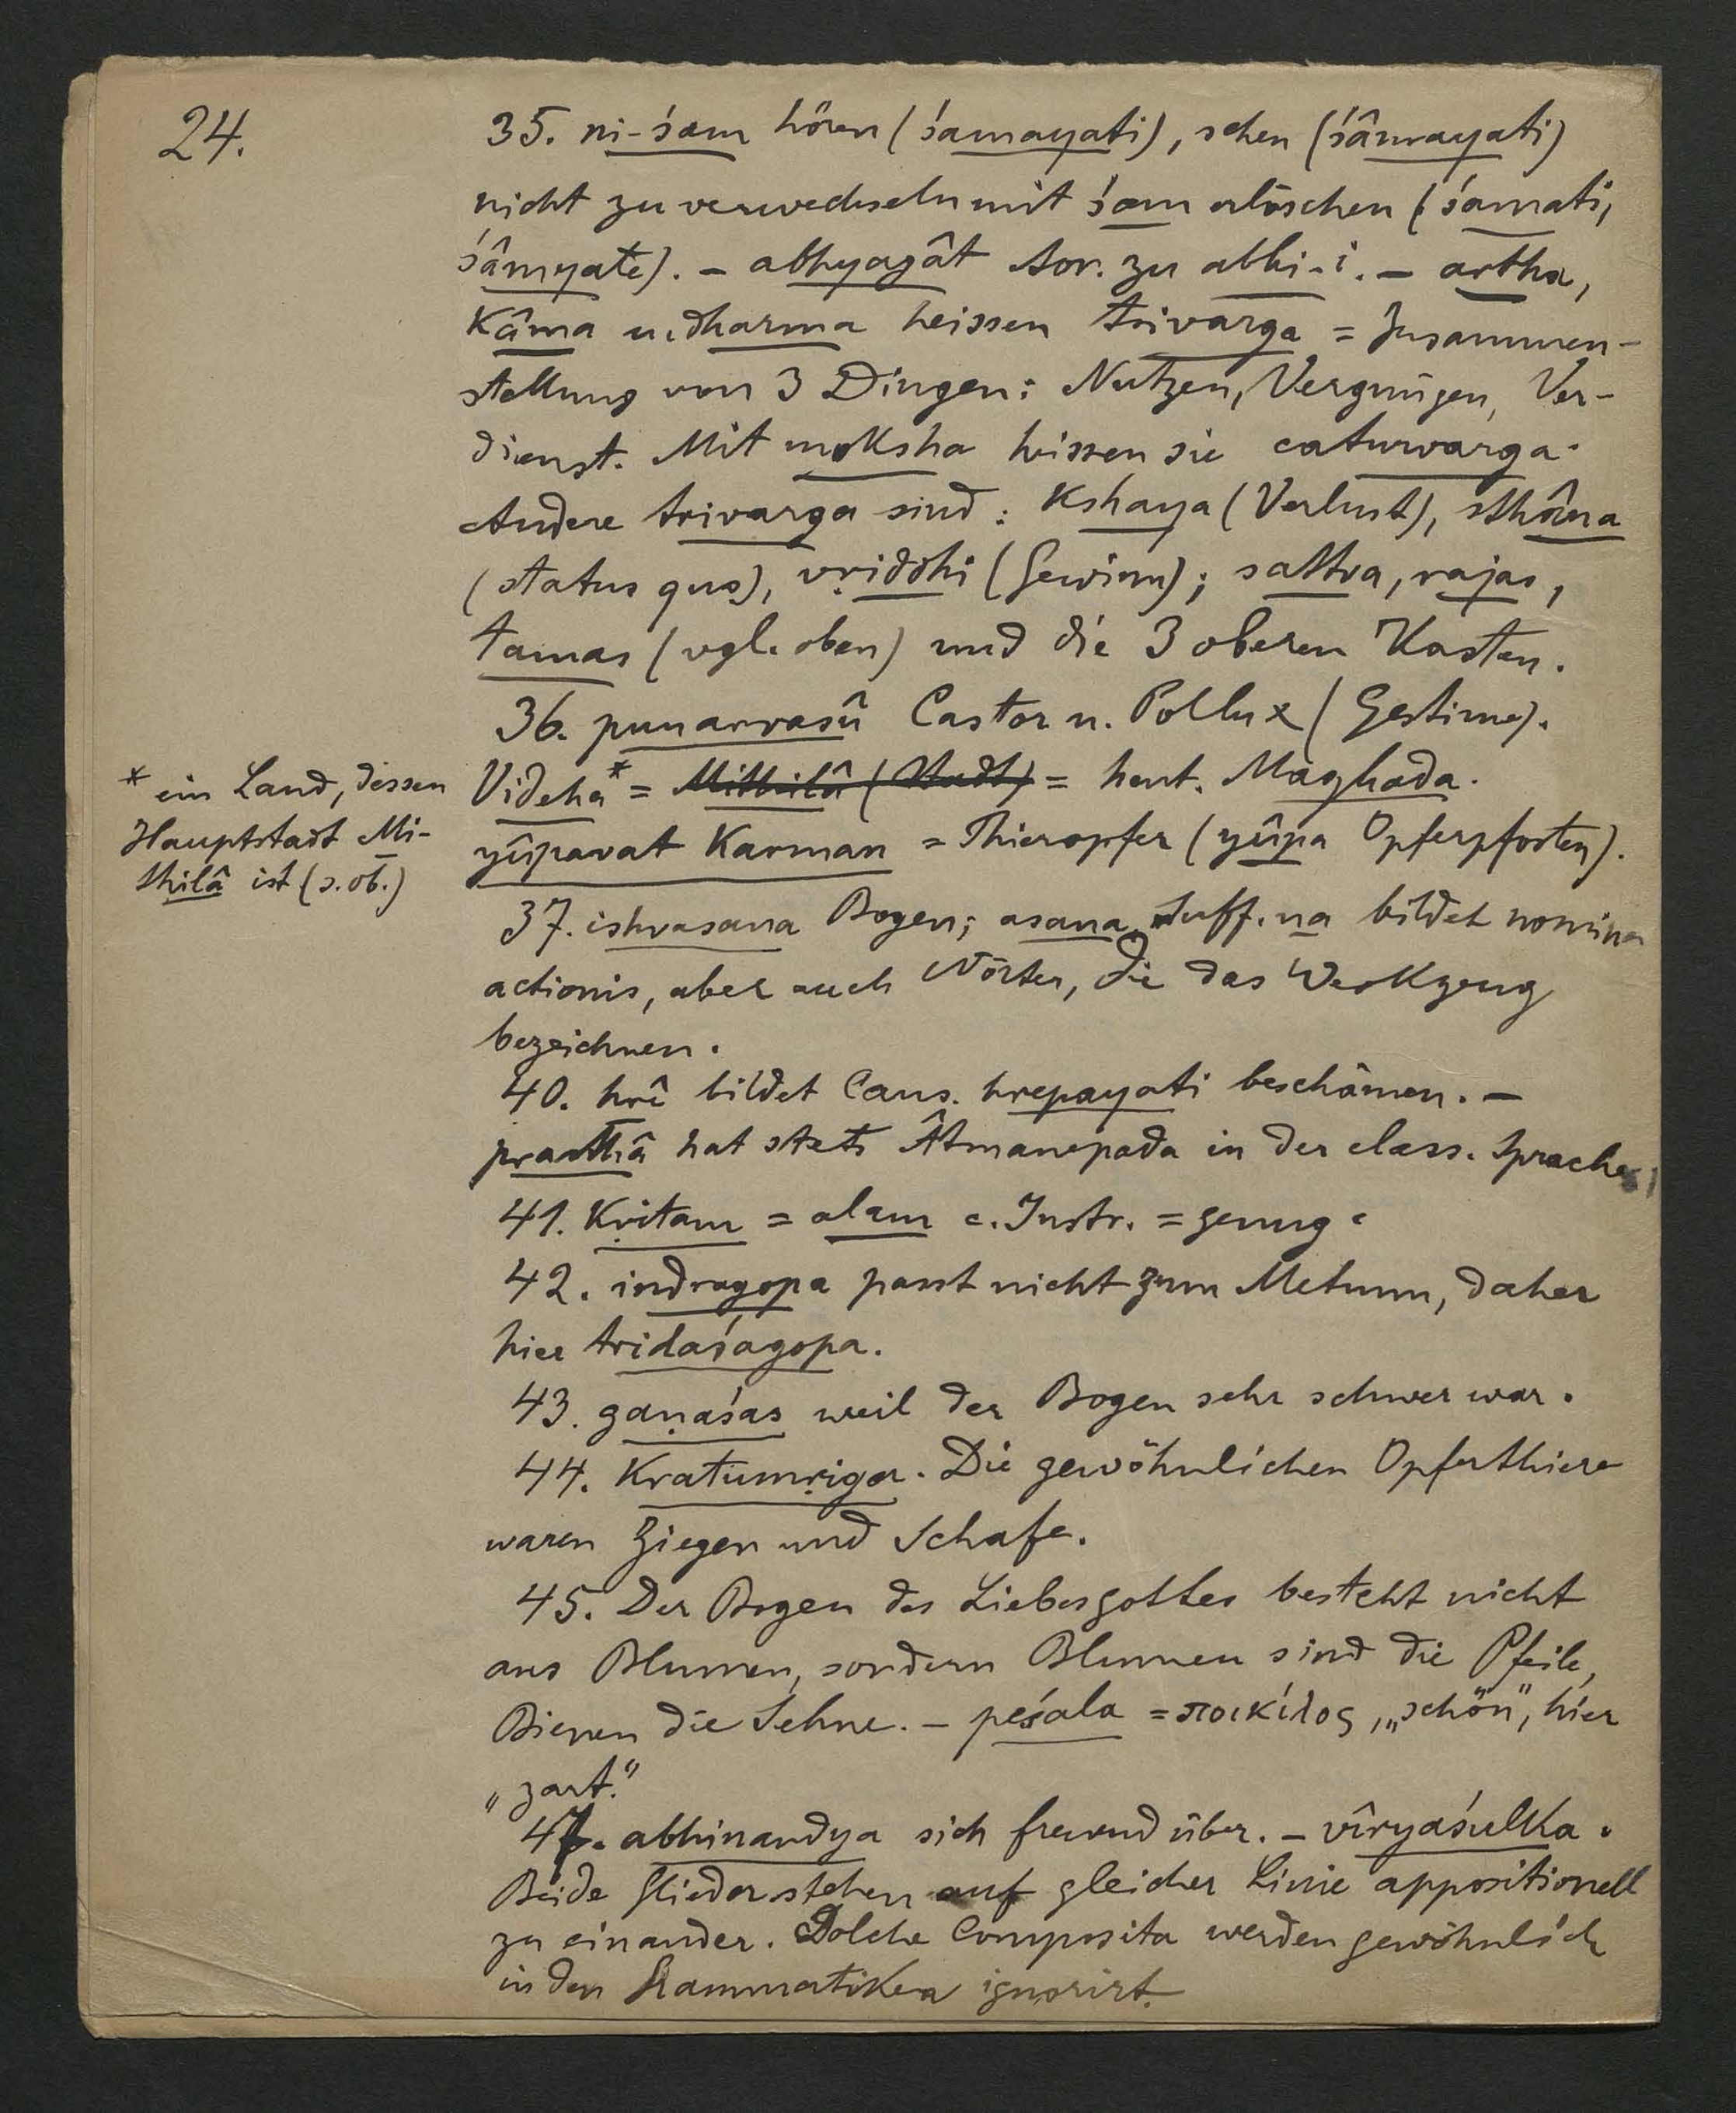 24.
35. ni-śam hören (śamayati), sehen (śâmayati)
nicht zu verwechseln mit śam erlöschen (śamati,
śâmyate). – abhyagât Aor. zu abhi-i. – artha,
kâma u. dharma heissen trivarga = Zusammen-
stellung von 3 Dingen: Nutzen, Vergnügen, Ver-
dienst. Mit moksha heissen sie caturvarga.
Andere trivarga sind: kshaya (Verlust), sthâna
(status quo), vṛiddhi (Gewinn); sattva, rajas,
tamas (vgl. oben) und die 3 oberen Kasten.
36. punarvasû Castor u. Pollux (Gestirne).
Videha* = Mithilâ (Stadt) = heut. Maghada.
* ein Land, dessen
Hauptstadt Mi-
thilâ ist (s. ob.)
yûpavat karman = Thieropfer (yûpa Opferpfosten).
37. ishvasana Bogen; asana, Suff. na bildet nomina
actionis, aber auch Wörter, die das Werkzeug
bezeichnen.
40. hrî bildet Caus. hrepayati beschämen. –
prasthâ hat stets Âtmanepada in der class. Sprache
41. Kṛitam = alam c. Instr. = genug.
42. indragopa passt nicht zum Metrum, daher
hier tridaśagopa.
43. gaṇaśas weil der Bogen sehr schwer war.
44. Kratumṛiga. Die gewöhnlichen Opferthiere
waren Ziegen und Schafe.
45. Der Bogen des Liebesgottes besteht nicht
aus Blumen, sondern Blumen sind die Pfeile,
Bienen die Sehne. – peśala = ποικίλος, „schön", hier
„zart."
47. abhinandya sich freuend über. – vîryaśulka.
Beide Glieder stehen auf gleicher Linie appositionell
zu einander. Solche Composita werden gewöhnlich
in den Grammatiken ignorirt.